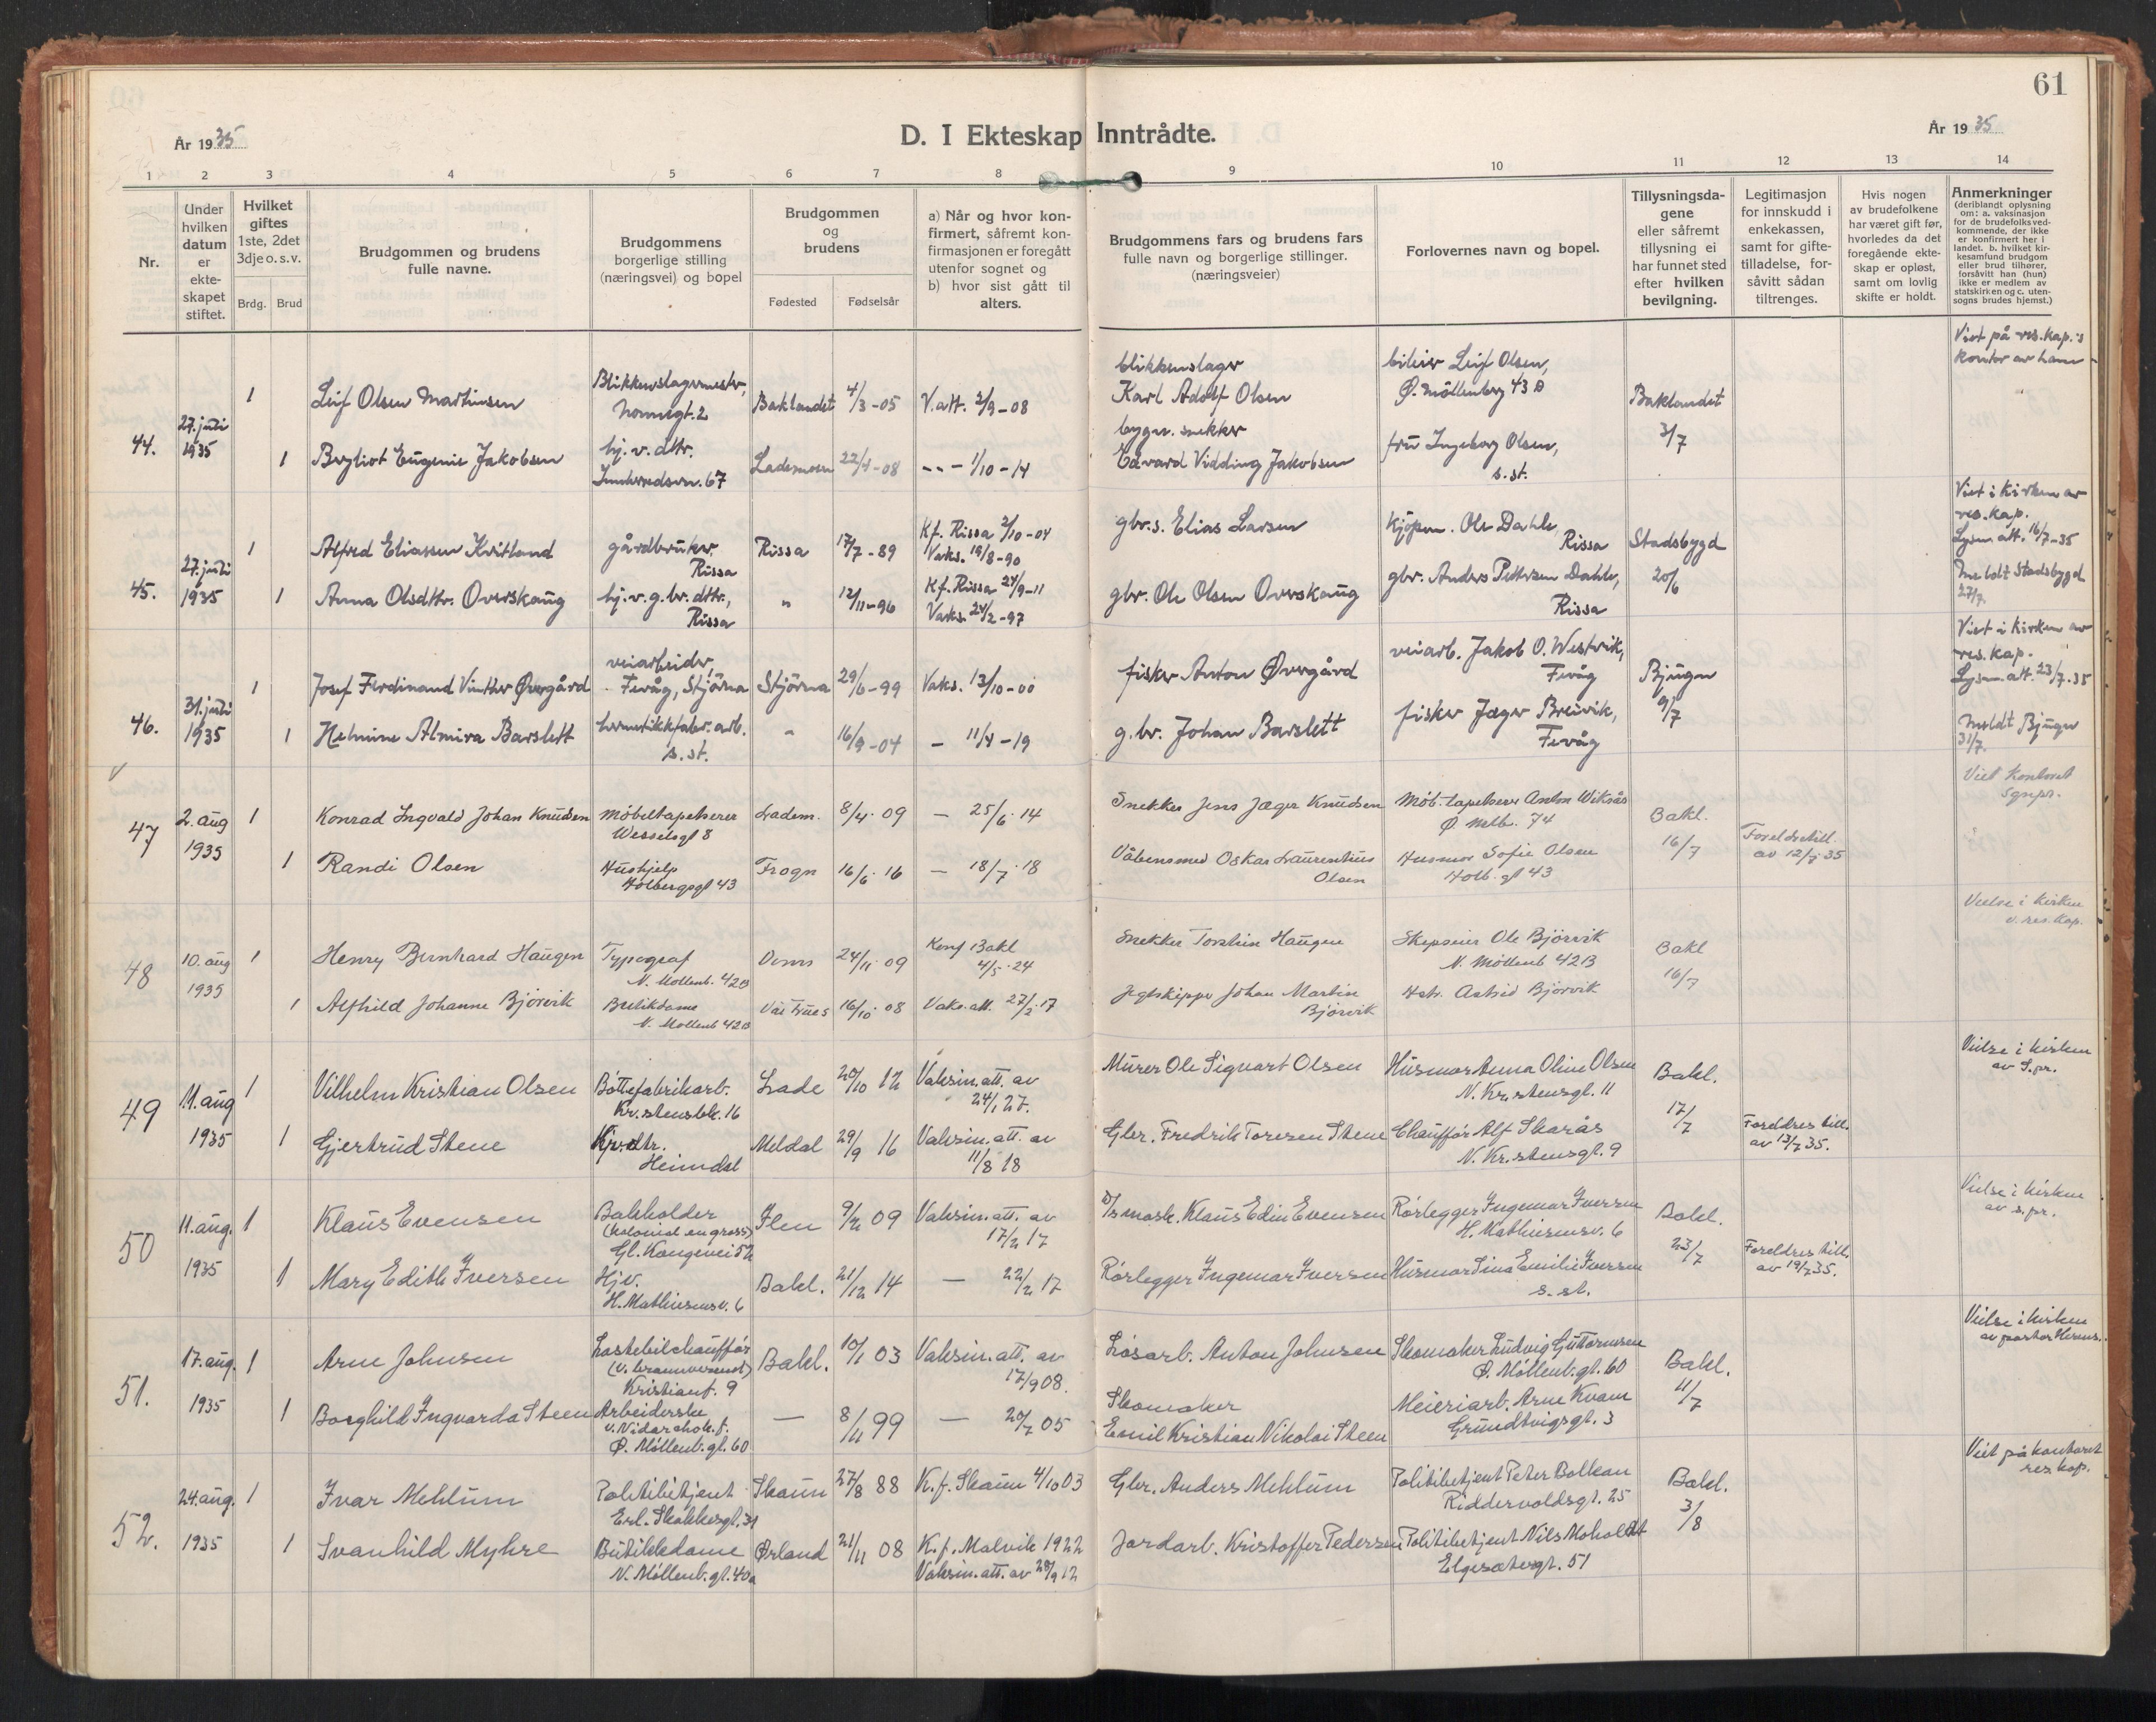 61
År 1935
D. I Ekteskap Inntrådte.
År 1935
1 2 3 4 5 6 7 8 9 10 11 12 13 14
Nr.
Under hvilken datum er ekteskapet stiftet.
Hvilket giftes 1ste, 2det 3dje o. s. v.
Brdg. Brud
Brudgommen og brudens fulle navne.
Brudgommens borgerlige stilling (næringsvei) og bopel
Brudgommen og brudens
Fødested Fødselsår
a) Når og hvor konfirmert, såfremt konfirmasjonen er foregått utenfor sognet og
b) hvor sist gått til alters.
Brudgommens fars og brudens fars fulle navn og borgerlige stillinger. (næringsveier)
Forlovernes navn og bopel.
Tillysningsdagene eller såfremt tillysning ei har funnet sted efter hvilken bevilgning.
Legitimasjon for innskudd i enkekassen, samt for giftetilladelse, forsåvitt sådan tiltrenges.
Hvis nogen av brudefolkene har været gift før, hvorledes da det foregående ekteskap er opløst, samt om lovlig skifte er holdt.
Anmerkninger (deriblandt oplysning om: a. vaksinasjon for de brudefolksvedkommende, der ikke er konfirmert her i landet. b. hvilket kirkesamfund brudgom eller brud tilhører, forsåvitt han (hun) ikke er medlem av statskirken og c. utensogns brudes hjemst.)
44. 27. juli 1935
1 Leif Olsen Martinsen Blikkenslagermestr, Nonnegt. 2 Baklandet 4/3-05 V.att. 2/9-08 blikkenslager Karl Adolf Olsen bileier Leif Olsen, Ø. Möllenberg 43 A Baklandet 3/7 Viet på res.kap.'s kontor av ham
1 Bergliot Eugenie Jakobsen hj. v. dttr. Innherredsvn. 67 Lademoen 22/4-08 - - - 1/10-14 bygn. snekker Edvard Vidding Jakobsen fru Ingeborg Olsen, s. st.
45. 27. juli 1935
1 Alfred Eliassen Kvitland gårdbruker, Rissa Rissa 17/7-89 Kf. Rissa 2/10-04 Vaks. 19/8-90 gbr.s. Elias Larsen kjøpm. Ole Dahle, Rissa Stadsbygd 20/6 Viet i kirken av res. kap. Lysn.att. 16/7-35
1 Anna Olsdttr. Overskaug hj. v. g.br. dttr., Rissa " 12/11-96 Kf. Rissa 24/9-11 Vaks. 24/2-97 gbr. Ole Olsen Overskaug gbr. Anders Pettersen Dahle, Rissa Meldt Stadsbygd 27/7.
46. 31. juli 1935
1 Josef Ferdinand Vinther Øvergård veiarbeider, Fevåg, Stjörna Stjörna 29/6-99 Vaks. 13/10-00 fisker Anton Øvergård veiarb. Jakob O. Westvik, Fevåg Bjugn 9/7 Viet i kirken av res. kap. Lysn.att. 23/7-35
1 Helmine Almira Barslett hermetikkfabr. arb. s. st. " 16/9-04 - 11/4-19 g.br. Johan Barslett fisker Jæger Breivik, Fevåg Meldt Bjugn 31/7.
47 2. aug 1935
1 Konrad Ingvald Johan Knudsen Møbeltapetserer Wesselsgt 8 Ladem. 8/4.09 - 25/6.14 Snekker Jens Jæger Knudsen Møb. tapetserer Anton Wiksås Ø. Møllb. 74 Bakl. 16/7 Viet kontoret sgnpr.
1 Randi Olsen Hushjelp Holbergsgt 43 Frogn 16/6.16 - 18/7.18 Våbensmed Oskar Laurentius Olsen Husmor Sofie Olsen Holb. gt 43 Foreldretill. av 12/7 35
48 10. aug 1935
1 Henry Bernhard Haugen Typograf N. Mollenb. 42B Doms 24/11 09 Konf Bakl 4/5.24 Snekker Torstein Haugen Skipseier Ole Bjørvik N. Møllenb 42B Bakl 16/7 Vielse i kirken v. res. kap.
1 Alfhild Johanne Bjørvik Butikdame N. Mollenb 42B Vår Frues 16/10 08 Vaks.att. 27/2.17 Jegtskipper Johan Martin Bjørvik Hstr. Astrid Bjørvik
49 11. aug 1935
1 Vilhelm Kristian Olsen Bøttefabrikarb. Kr.stensbk. 16 Lade 20/10 12 Vaksin.att. av 24/1 27. Murer Ole Sigvart Olsen Husmor Anna Oline Olsen N. Kr.stensgt. 11 Bakl. 17/7 Vielse i kirken av S.pr.
1 Gjertrud Stene Hj.v.dtr. Heimdal Meldal 29/9 16 Vaksin. att. av 11/8 18 Gbr. Fredrik Toresen Stene Chauffør Alf Skarås N. Kr.stensgt. 9 Foreldres till. av 13/7 35.
50 11. aug. 1935
1 Klaus Evensen Bakholder (kolonial en gross) Gl. Kongevei 52 Ilen 9/2 09 Vaksin. att. av 17/2 17 D/S mask. Klaus Edin Evensen Rørlegger Ingemar Iversen H. Mathiesensv. 6 Bakl. 23/7 Vielse i kirken av s.pr.
1 Mary Edith Iversen Hj.v. H. Mathiesensv. 6 Bakl. 21/12 14 - 22/2 17 Rørlegger Ingemar Iversen Husmor Sina Emilie Iversen s. st. Foreldres till. av 19/7 35.
51. 17. aug. 1935
1 Arne Johnsen Lastebilchauffør (v. brannvesenet) Kristianf. 9 Bakl. 10/1 03 Vaksin. att. av 17/9 08. Løsarb. Anton Johnsen Skomaker Ludvig Guttormsen Ø. Møllenb. gt. 60 Bakl. 11/7 Vielse i kirken av pastor
1 Borghild Ingvarda Steen Arbeiderske v. Nidar chok. f. Ø. Møllenb. gt. 60 - 8/11 99 - 20/7 05 Skomaker Emil Kristian Nikolai Steen Meieriarb. Arne Kvam Grundtvigsgt. 3
52. 24. aug. 1935
1 Ivar Mehlum Politibetjent Erl. Skakkesgt. 31 Skaun 27/8 88 K.f. Skaun 4/10 03 Gbr. Anders Mehlum Politibetjent Peter Bolkan Riddervoldsgt. 25 Bakl. 3/8 Viet på kontoret res. kap.
1 Svanhild Myhre Butikkdame N. Møllenb. gt. 40a Ørland 21/11 08 K.f. Malvik 1922 Vaksin. att. av 28/9 12 Jordarb. Kristoffer Pedersen Politibetjent Nils Moholdt Elgesætergt. 51